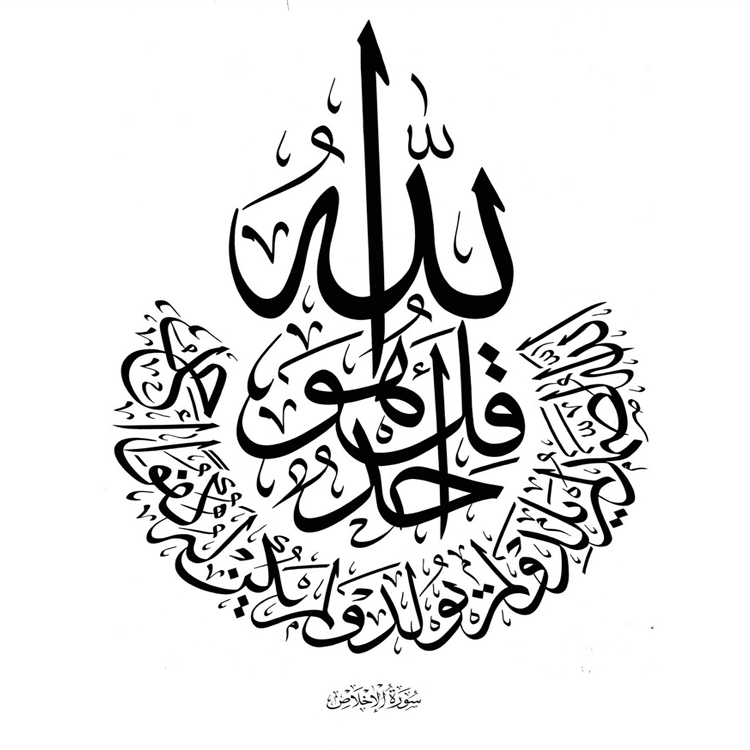 قُلْ هُوَ اللّٰهُ أَحَدٌ
اللّٰهُ الصَّمَدُ لَمْ يَلِدْ وَلَمْ يُولَدْ وَلَمْ يَكُنْ لَهُ كُفُوًا أَحَدٌ
سُورَةُ الْإِخْلَاصِ